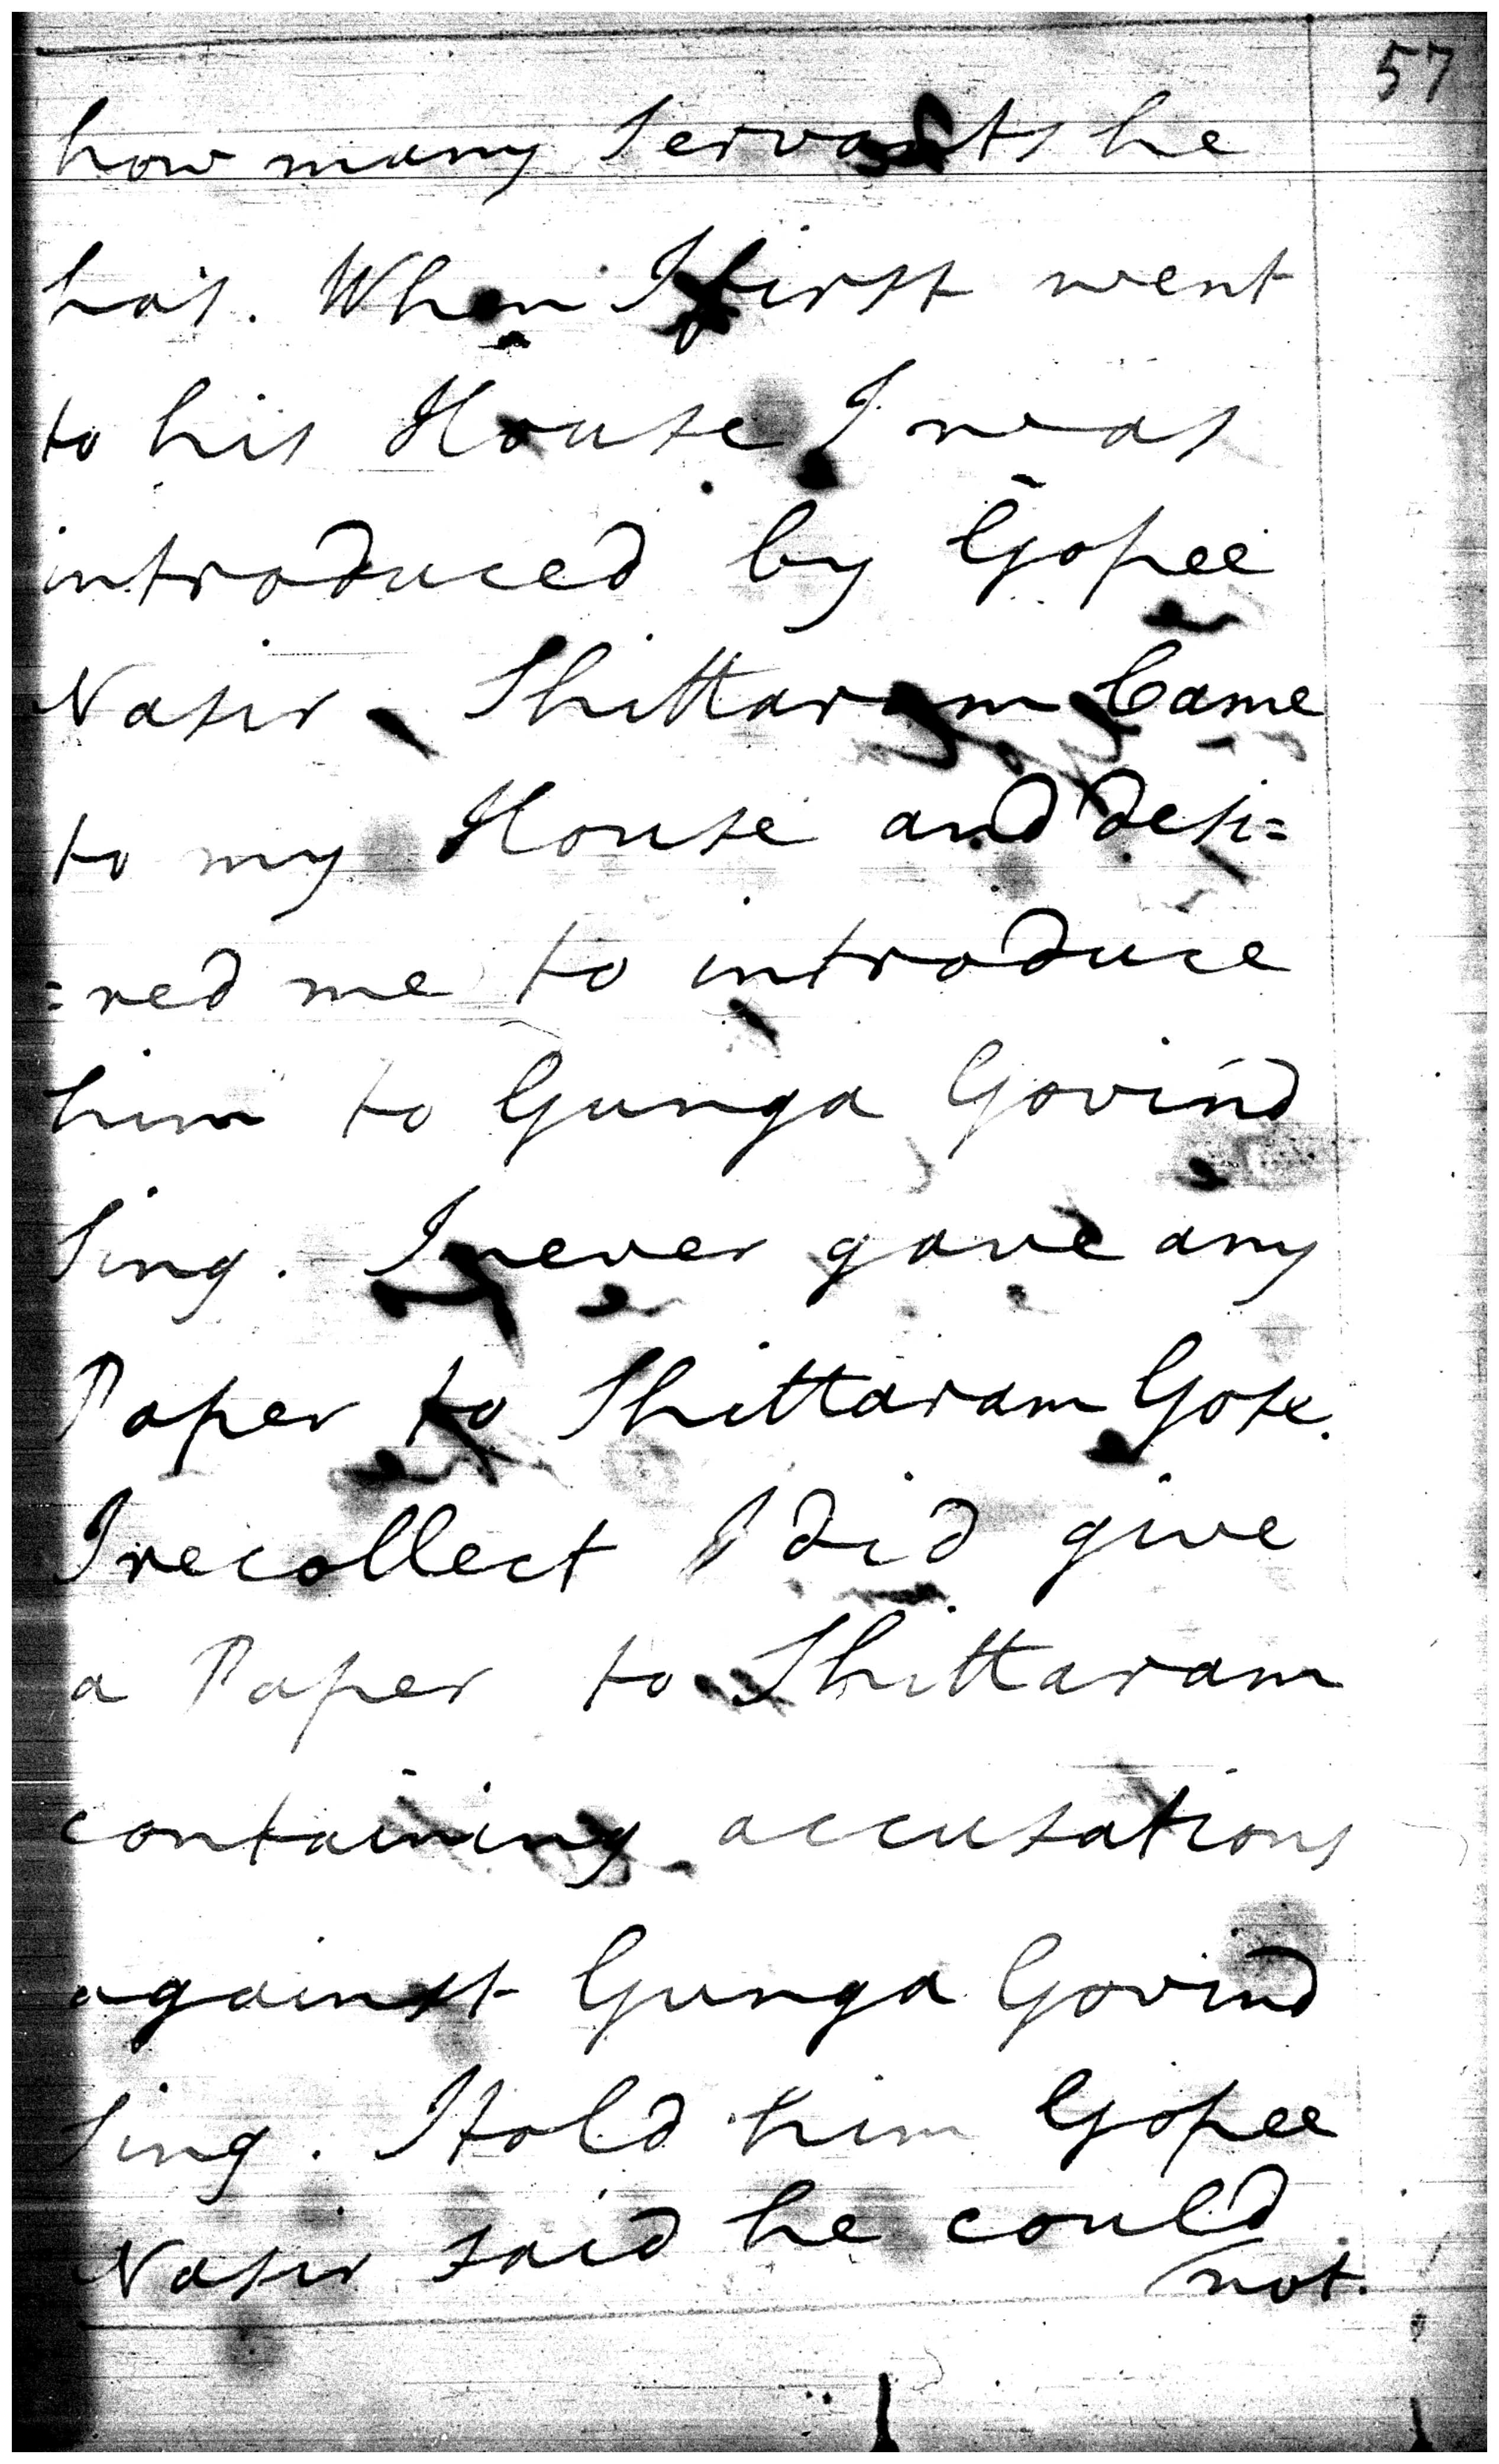 57
how many Servants he
has. When I first went
to his House I was
introduced by Gopee
Nasir. Shittaram Came
to my House and desi=
=red me to introduce
him to Gunga Govind
Sing. I never gave any
Paper to Shittaram Gose.
I recollect I did give
a Paper to Shittaram
containing accusations
against Gunga Govind
Sing. I told him Gopee
Nasir said he could
not.